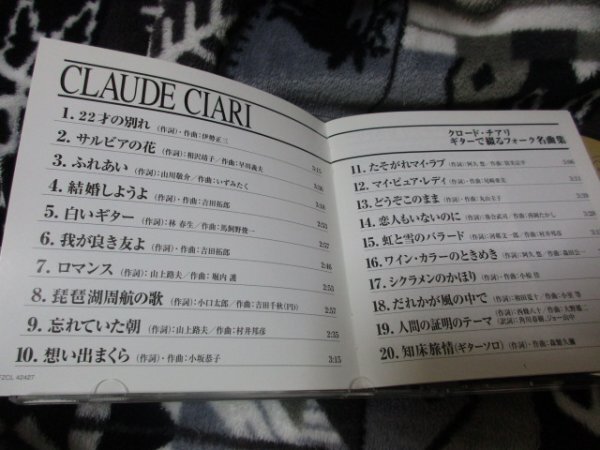 CLAUDE CIARI
1. 22才の別れ (作詞)・作曲:伊勢正三
2. サルビアの花 (作詞):相沢靖子/作曲:早川義夫 3:15
3. ふれあい (作詞):山川啓介/作曲:いずみたく
4. 結婚しようよ (作詞)・作曲:吉田拓郎
5. 白いギター (作詞):林 春生/作曲:馬飼野俊一
6. 我が良き友よ (作詞)・作曲:吉田拓郎 2:57
7. ロマンス (作詞):山上路夫/作曲:堀内 護 2:46
8. 琵琶湖周航の歌 (作詞):小口太郎/作曲:吉田千秋(PD) 2:53
9. 忘れていた朝 (作詞):山上路夫/作曲:村井邦彦 2:35
10. 想い出まくら (作詞)・作曲:小坂恭子 3:15
FZCL 42427
クロード・チアリ
ギターで綴るフォーク名曲集
11. たそがれマイ・ラブ (作詞):阿久 悠/作曲:筒美京平 3:06
12. マイ・ピュア・レディ (作詞)・作曲:尾崎亜美
13. どうぞこのまま (作詞)・作曲:丸山圭子
14. 恋人もいないのに (作詞):落合武司/作曲:西岡たかし
15. 虹と雪のバラード (作詞):河邨文一郎/作曲:村井邦彦
16. ワイン・カラーのときめき (作詞):阿久 悠/作曲:森田公一
17. シクラメンのかほり (作詞)・作曲:小椋 佳
18. だれかが風の中で (作詞):和田夏十/作曲:小室 等
19. 人間の証明のテーマ (作詞):西條八十/作曲:大野雄二
(訳詞):角川春樹、ジョー山中
20. 知床旅情(ギターソロ) (作詞)・作曲:森繁久彌